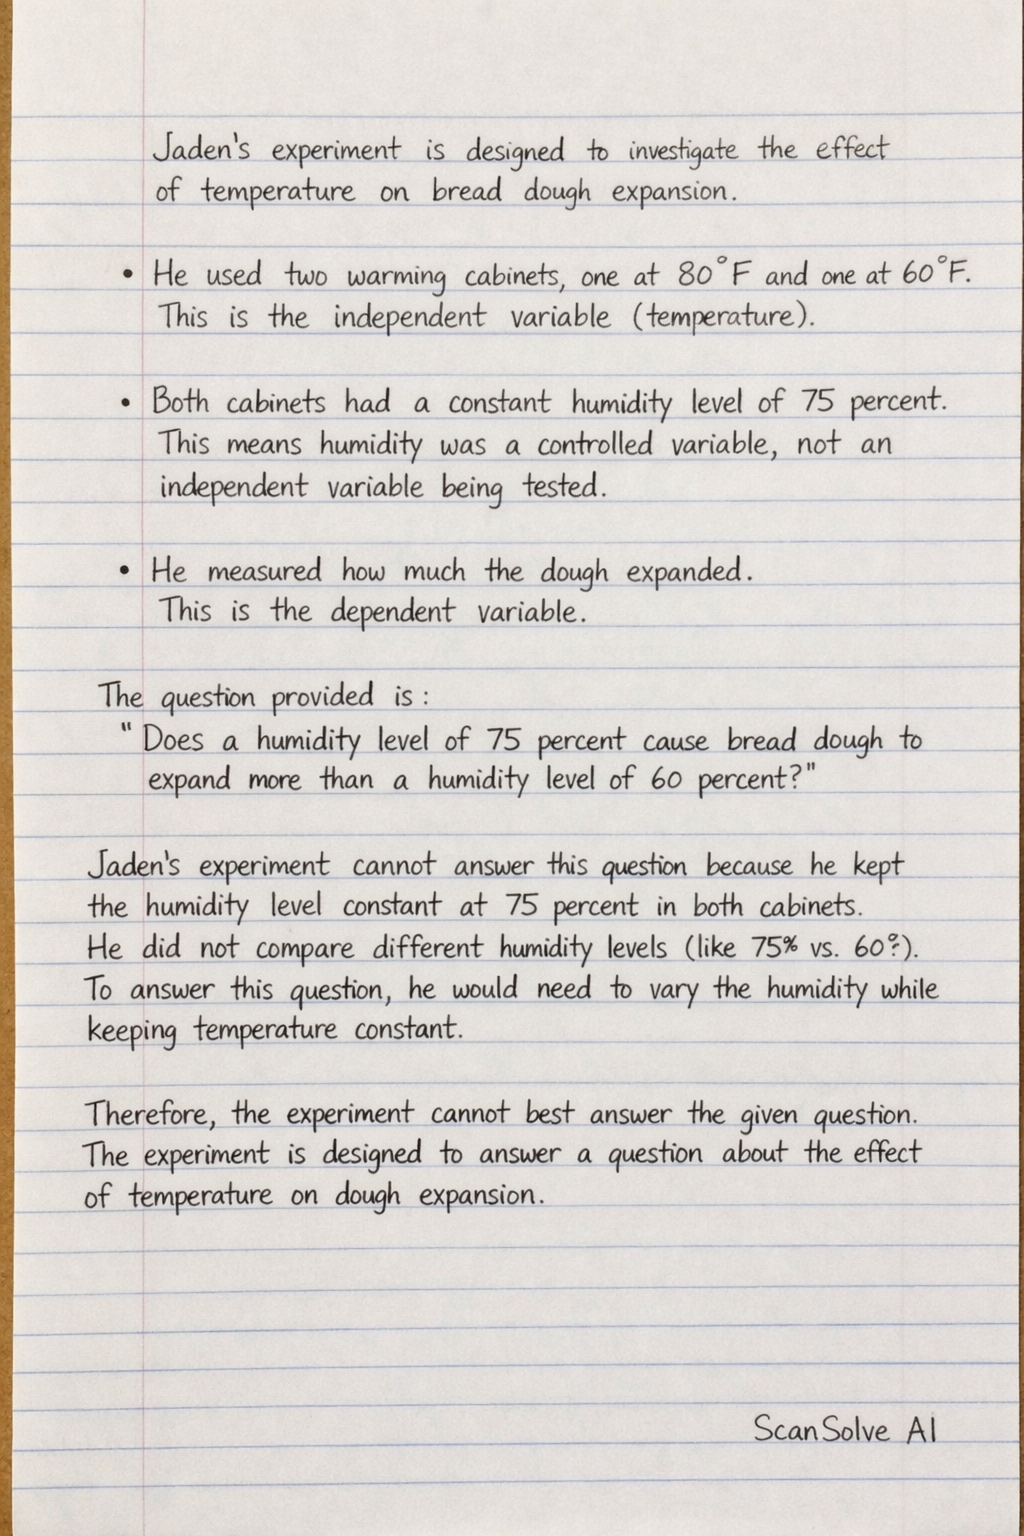 Jaden's experiment is designed to investigate the effect
of temperature on bread dough expansion.
• He used two warming cabinets, one at 80°F and one at 60°F.
This is the independent variable (temperature).
• Both cabinets had a constant humidity level of 75 percent.
This means humidity was a controlled variable, not an
independent variable being tested.
• He measured how much the dough expanded.
This is the dependent variable.
The question provided is:
"Does a humidity level of 75 percent cause bread dough to
expand more than a humidity level of 60 percent?"
Jaden's experiment cannot answer this question because he kept
the humidity level constant at 75 percent in both cabinets.
He did not compare different humidity levels (like 75% vs. 60?).
To answer this question, he would need to vary the humidity while
keeping temperature constant.
Therefore, the experiment cannot best answer the given question.
The experiment is designed to answer a question about the effect
of temperature on dough expansion.
ScanSolve AI